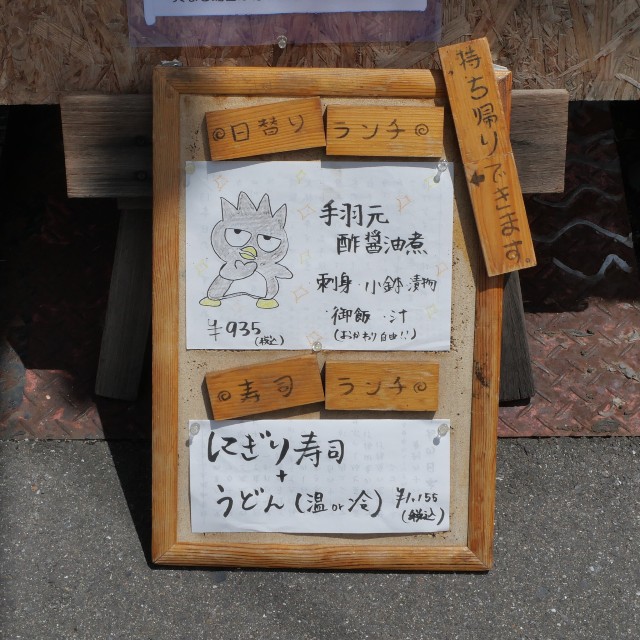 持ち帰りできます
日替り ランチ
手羽元
酢醤油煮
刺身・小鉢・漬物
・御飯・汁
(おかわり自由!!)
¥935
(税込)
寿司 ランチ
にぎり寿司
+
うどん(温or冷) ¥1,155
(税込)